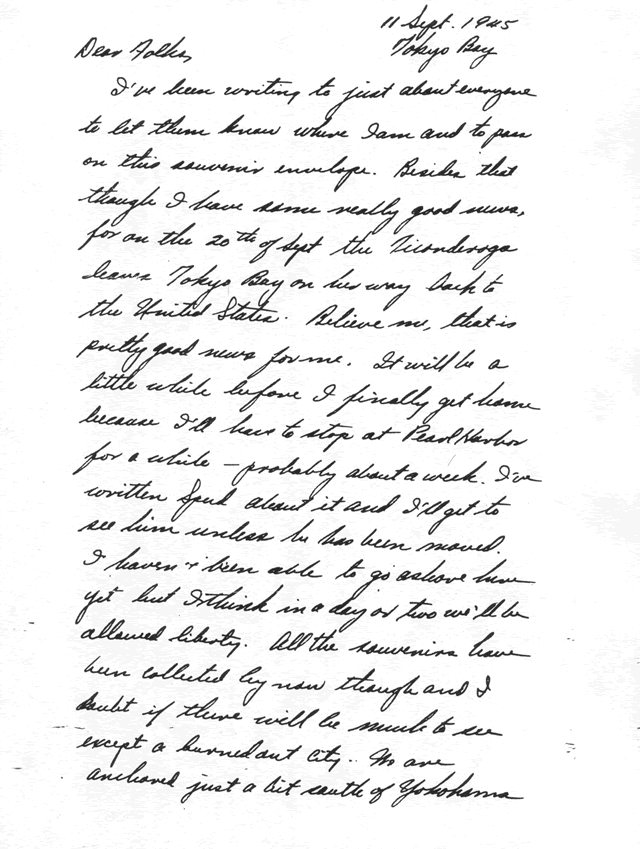 11 Sept. 1945
Tokyo Bay
Dear Folks,
I've been writing to just about everyone
to let them know where I am and to pass
on this souvenir envelope. Besides that
though I have some really good news,
for on the 20th of Sept the Ticonderoga
leaves Tokyo Bay on her way back to
the United States. Believe me, that is
pretty good news for me. It will be a
little while before I finally get home
because I'll have to stop at Pearl Harbor
for a while – probably about a week. I've
written Spud about it and I'll get to
see him unless he has been moved.
I haven't been able to go ashore here
yet but I think in a day or two we'll be
allowed liberty. All the souvenirs have
been collected by now though and I
doubt if there will be much to see
except a burned out city. We are
anchored just a bit south of Yokohama